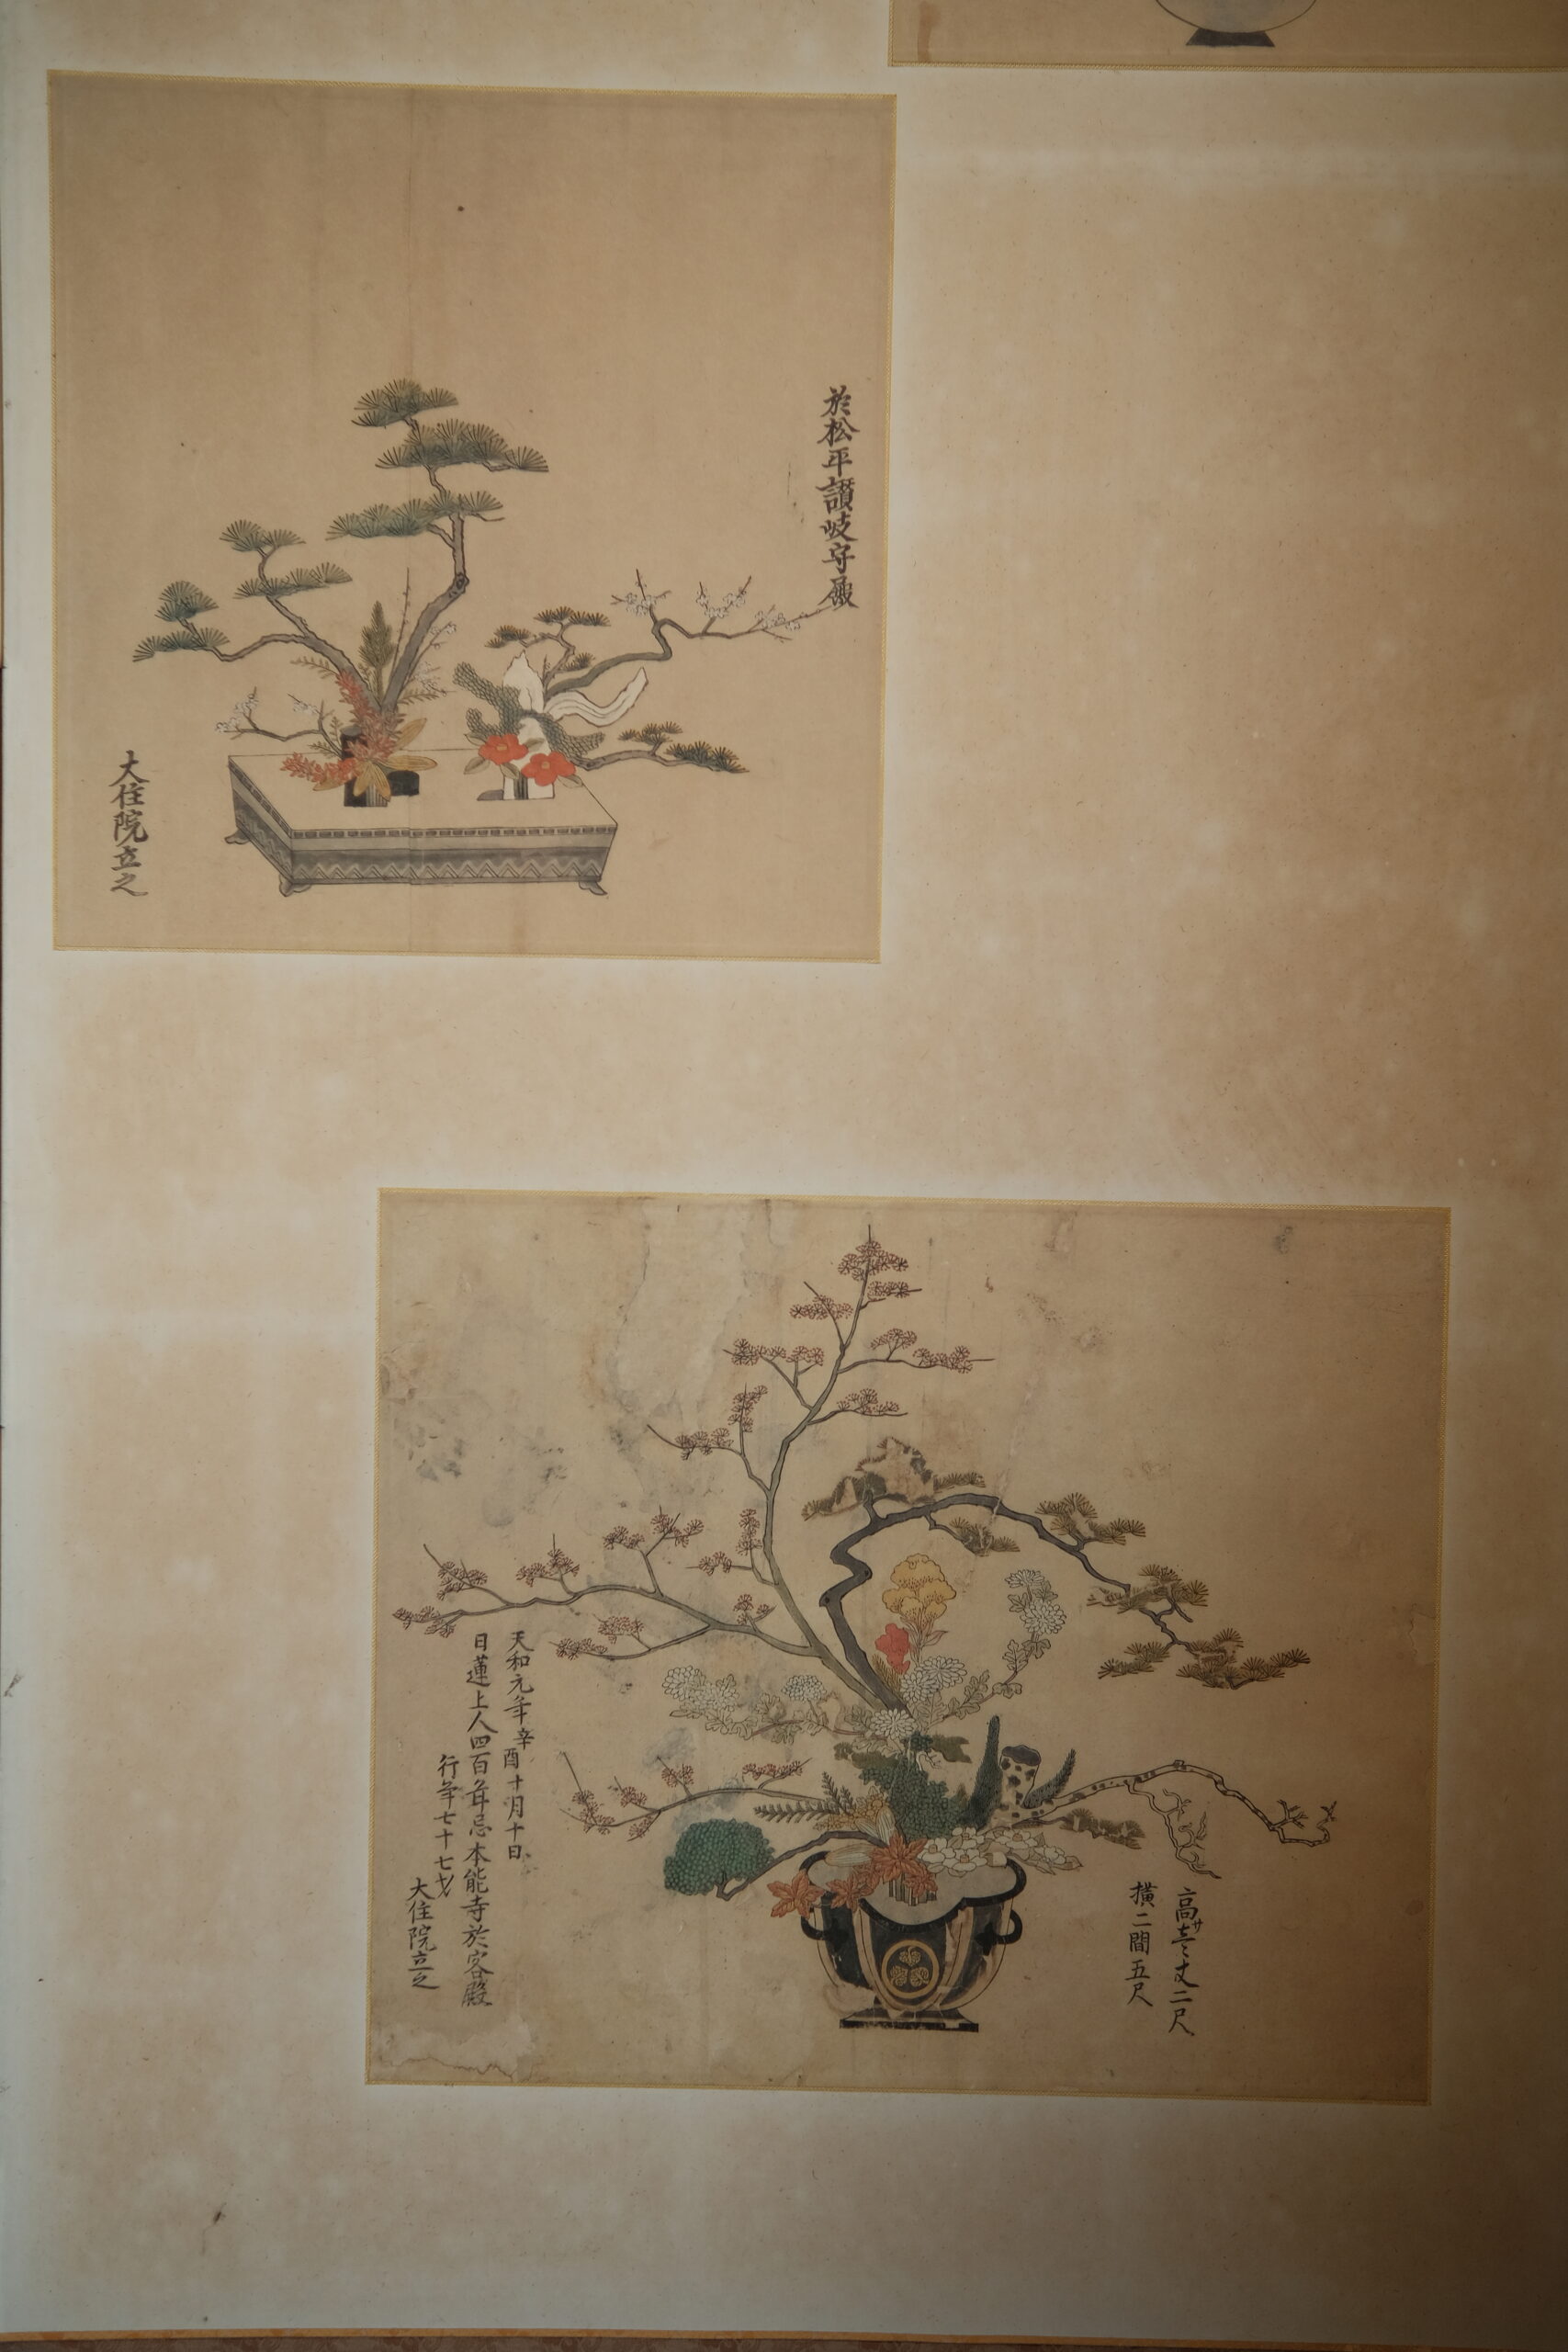 於松平讃岐守殿
大住院立之
高サ壱丈二尺
横二間五尺
天和元年辛酉十月十日
日蓮上人四百年忌本能寺於客殿
行年七十七才
大住院立之